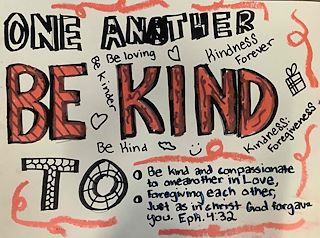 ONE ANOTHER
Be loving
Be
Kinder
Kindness
Forever
BE KIND
Be Kind
Kindness:
Foregiveness
TO
Be kind and compassionate
to oneanother in Love,
Foregiving each other,
Just as in christ God forgave
you. Eph. 4:32